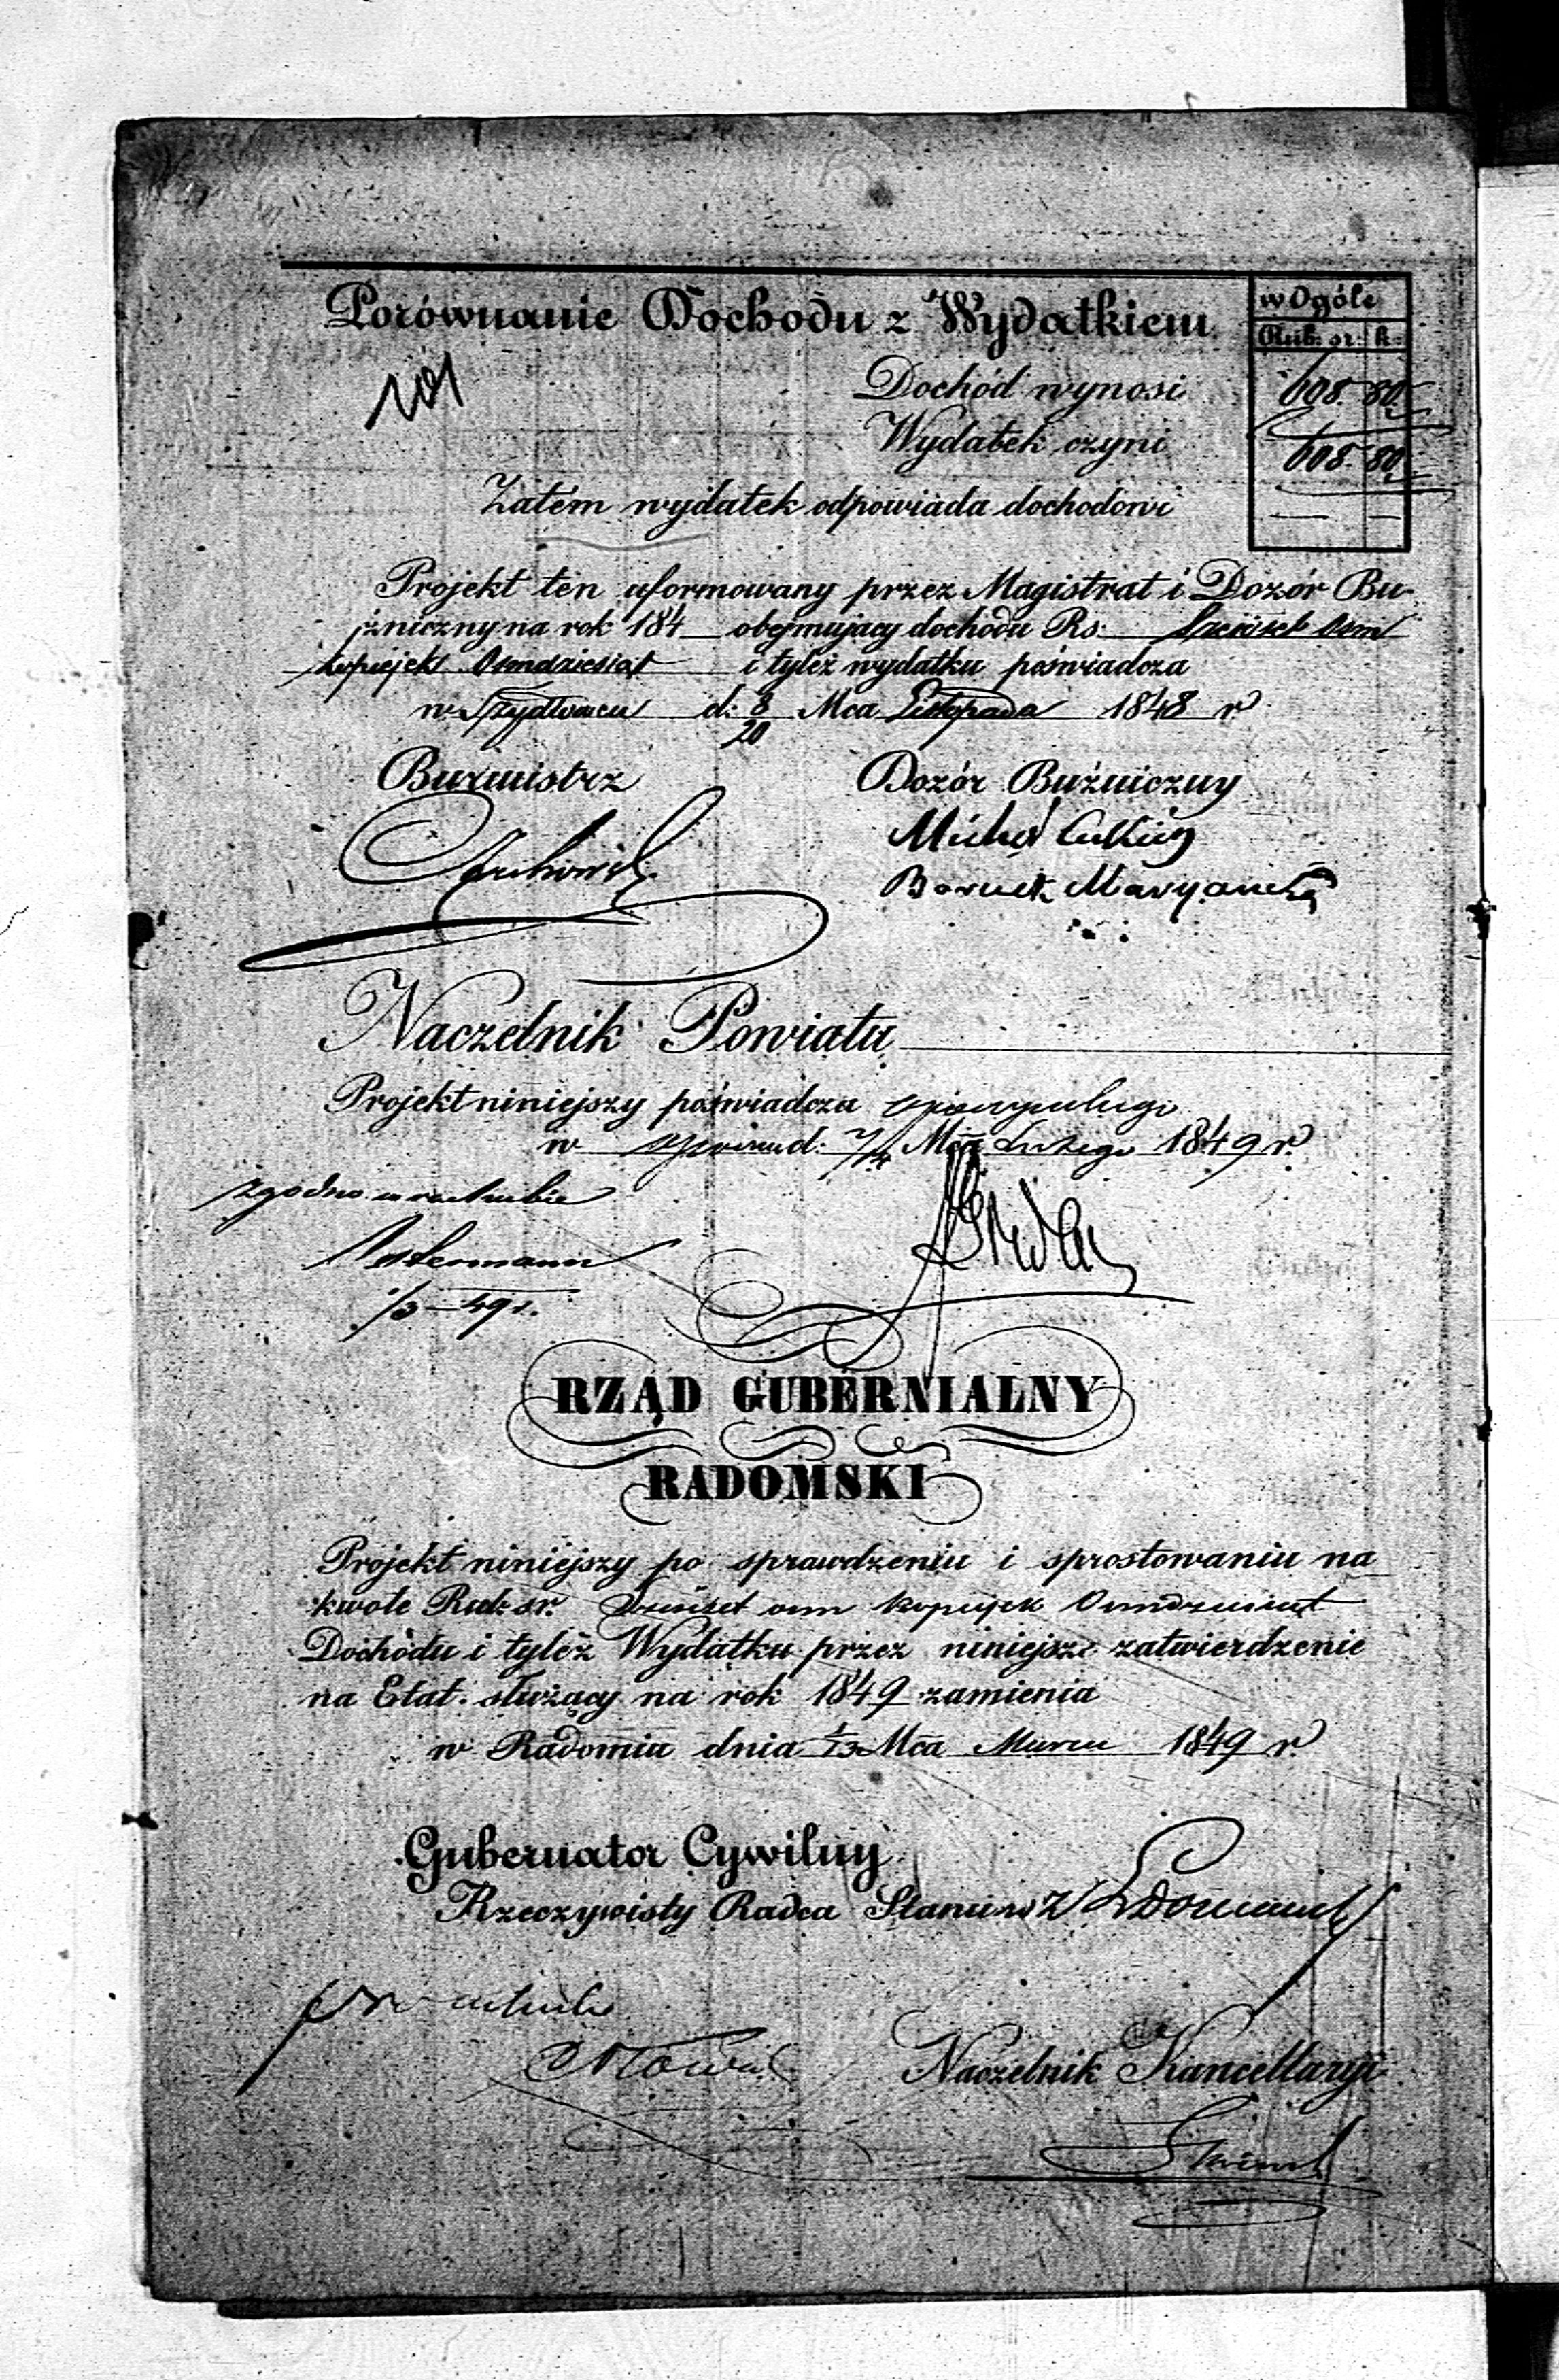 Porównanie Dochodu z Wydatkiem
w Ogóle
Rub: sr: k:
101
Dochód wynosi 608. 80
Wydatek czyni 608. 80
Zatem wydatek odpowiada dochodowi — —
Projekt ten uformowany przez Magistrat i Dozór Bu-
źniczny na rok 184 obejmujący dochodu Rs: Sześćset Osm
kopiejek Osmdziesiąt i tyleż wydatku poświadcza
w Szydłowcu d: 8/20 Mca Listopada 1848 r.
Burmistrz
Dozór Buźniczny
Baruch
Naczelnik Powiatu
Projekt niniejszy poświadcza
w d: Mca Lutego 1849 r.
Zgodno w rachubie
/3 – 49 r.
RZĄD GUBERNIALNY
RADOMSKI
Projekt niniejszy po sprawdzeniu i sprostowaniu na
kwotę Rub: sr. Sześćset osm kopiejek Osmdziesiąt
Dochodu i tyleż Wydatku przez niniejsze zatwierdzenie
na Etat służący na rok 1849 zamienia
w Radomiu dnia 1/13 Mca Marca 1849 r.
Gubernator Cywilny
Rzeczywisty Radca Stanu
Naczelnik Kancellaryi